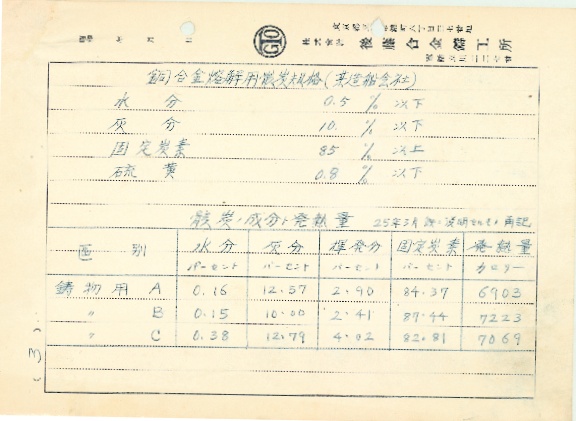 GTO
株式会社 後藤合金鑄工所
銅合金熔解用骸炭規格(某造船会社)
水分 0.5 % 以下
灰分 10. % 以下
固定炭素 85 % 以上
硫黄 0.8 % 以下
骸炭ノ成分ト発熱量 25年3月
区別 水分 灰分 揮発分 固定炭素 発熱量
パーセント パーセント パーセント パーセント カロリー
鋳物用 A 0.16 12.57 2.90 84.37 6903
〃 B 0.15 10.00 2.41 87.44 7223
〃 C 0.38 12.79 4.02 82.81 7069
(3)